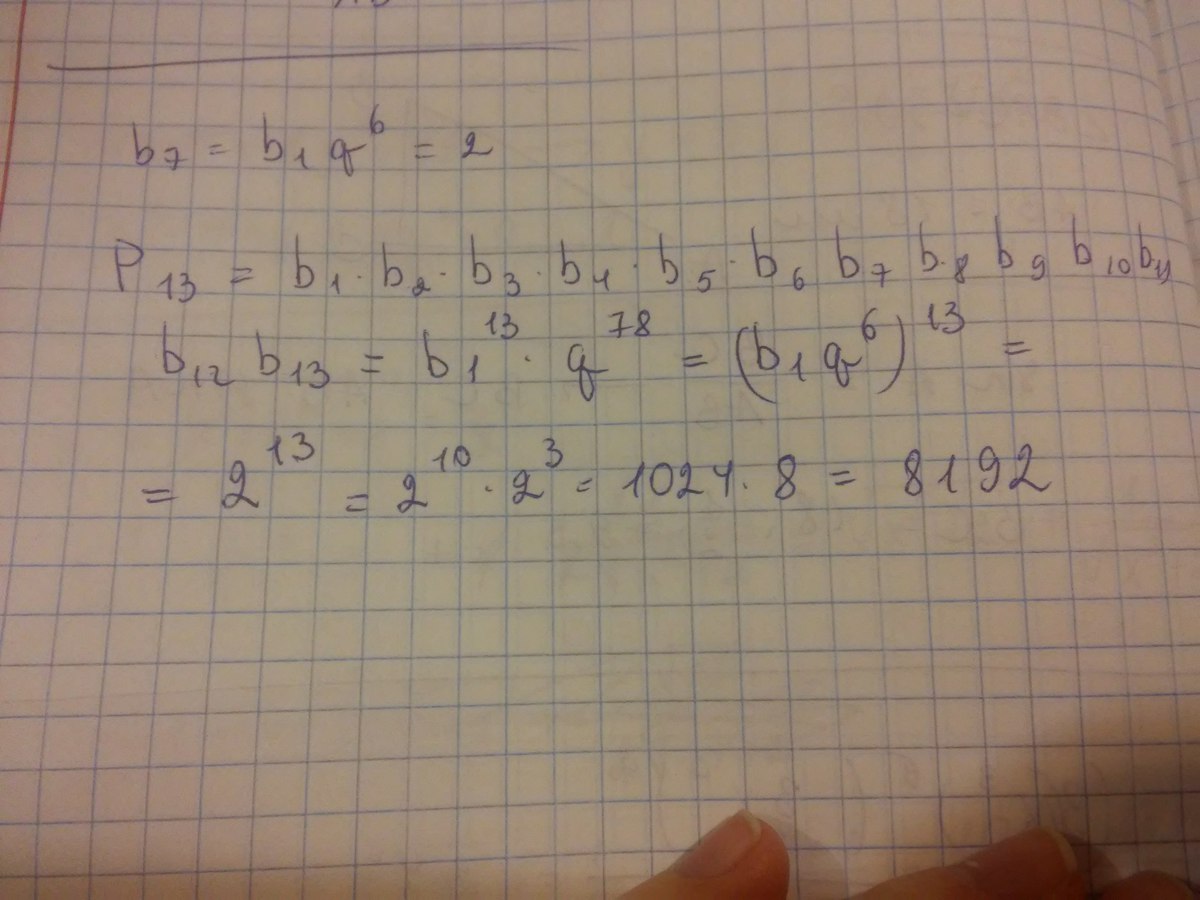 b₇ = b₁ q⁶ = 2
P₁₃ = b₁ · b₂ · b₃ · b₄ · b₅ · b₆ b₇ b₈ b₉ b₁₀ b₁₁
b₁₂ b₁₃ = b₁¹³ · q⁷⁸ = (b₁ q⁶)¹³ =
= 2¹³ = 2¹⁰ · 2³ = 1024 · 8 = 8192